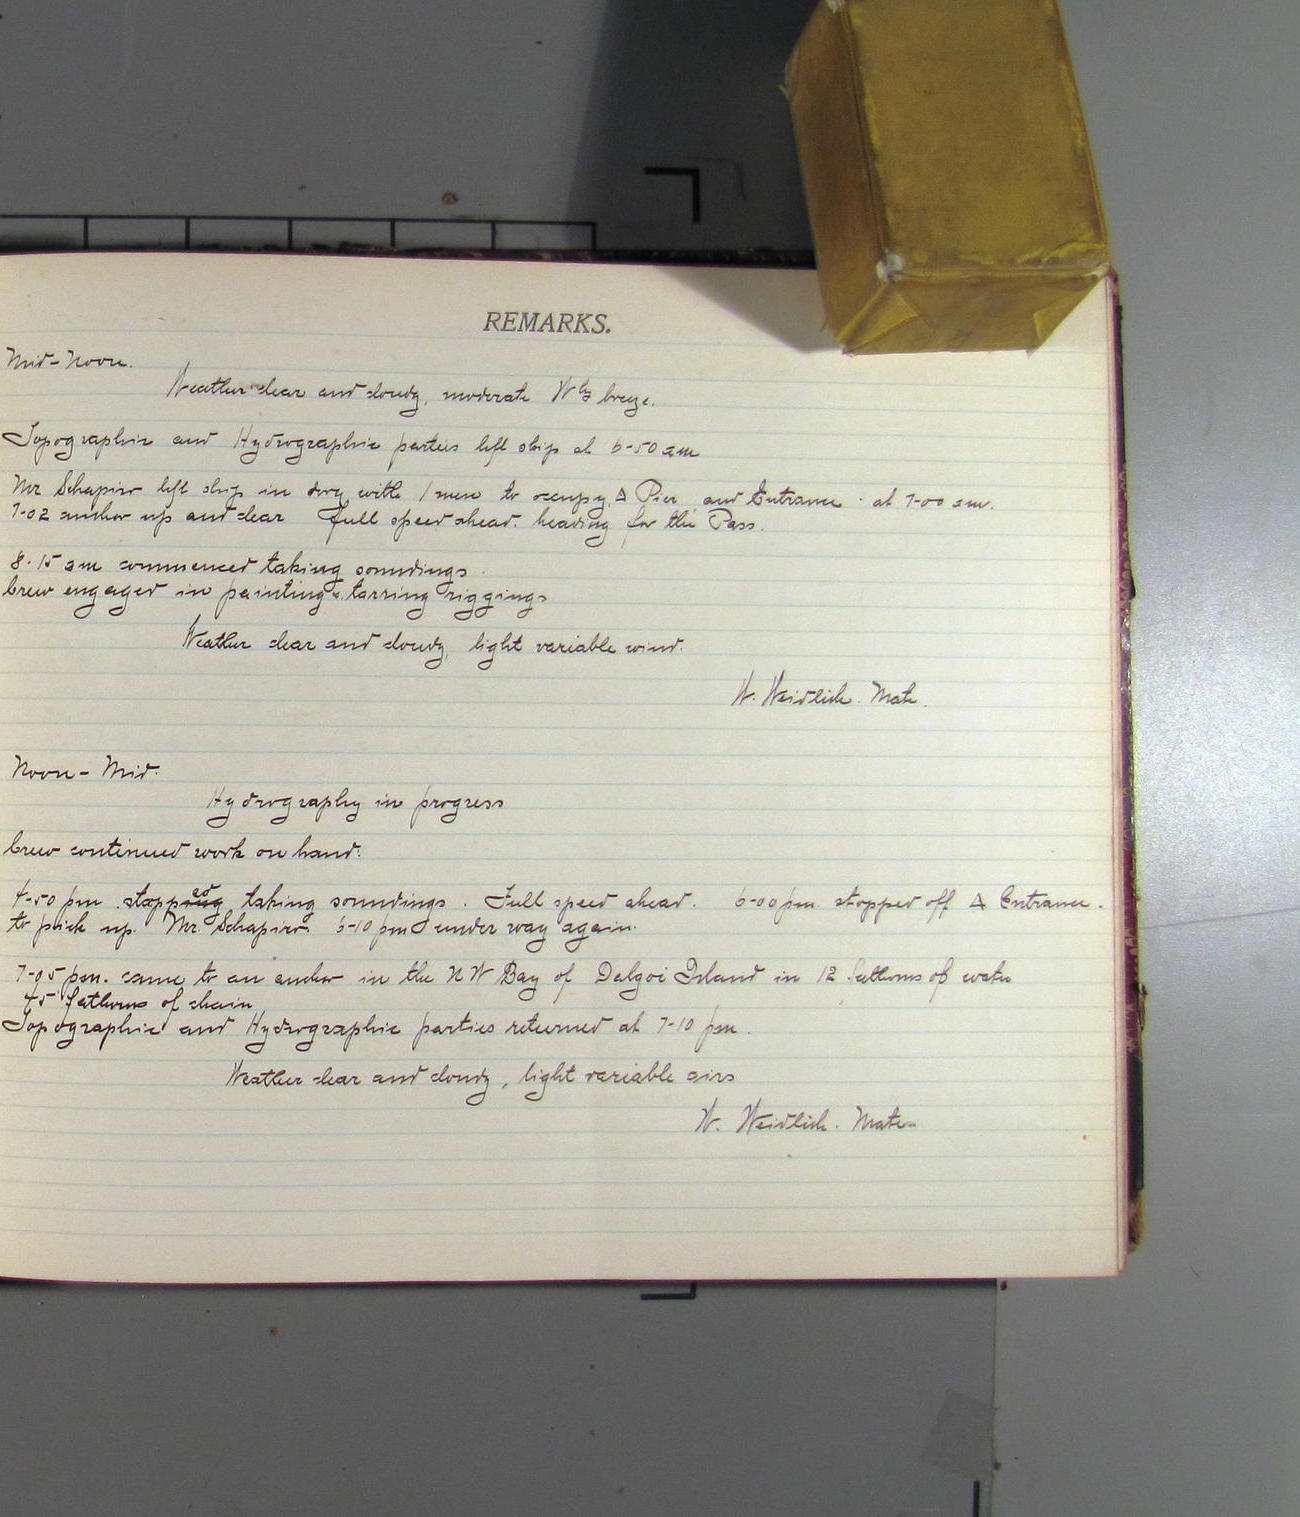 REMARKS.
Mid-Noon.
Weather clear and cloudy, moderate Wly breeze.
Topographic and Hydrographic parties left ship at 6-50 am
Mr Schapiro left ship in dory with 1 man to occupy △ Pier and Entrance at 7-00 am.
7-02 anchor up and clear full speed ahead. heading for the Pass.
8-15 am commenced taking soundings.
Crew engaged in painting & tarring riggings
Weather clear and cloudy, light variable wind.
W. Weidlich. Mate.
Noon - Mid.
Hydrography in progress
Crew continued work on hand.
4-50 pm stopped taking soundings. Full speed ahead. 6-00 pm. stopped off △ Entrance.
to pick up Mr. Schapiro. 6-10 pm under way again.
7-05 pm. came to an anchor in the NW Bay of Dolgoi Island in 12 fathoms of water
45 fathoms of chain
Topographic and Hydrographic parties returned at 7-10 pm.
Weather clear and cloudy, light variable airs
W. Weidlich. Mate